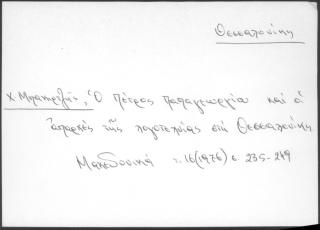 Θεσσαλονίκης
Χ. Μπακιρτζής, Ὁ Πέτρος Παπαγεωργίου καὶ οἱ
ἀπαρχές τῆς λογοτεχνίας στή Θεσσαλονίκη
Μακεδονικά τ. 16 (1976) σ. 235-249